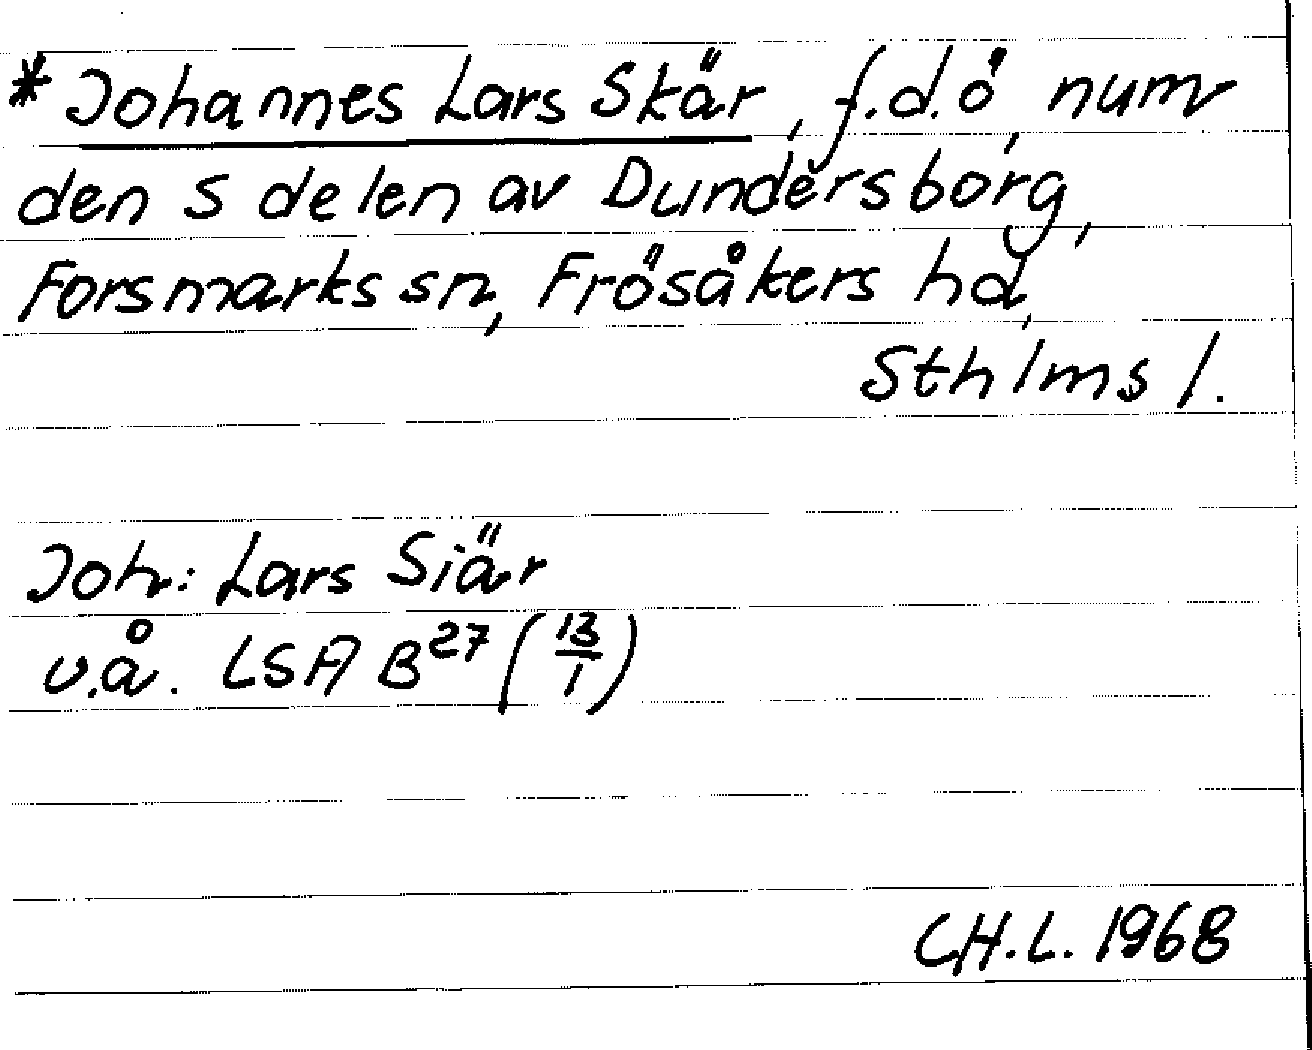 * Johannes Lars Skär, f.d. ö, num
den S delen av Dundersborg,
Forsmarks sn, Frösåkers hd,
Sthlms l.
Joh: Lars Siär
u.å. LSA B27 (13/1)
CH.L. 1968